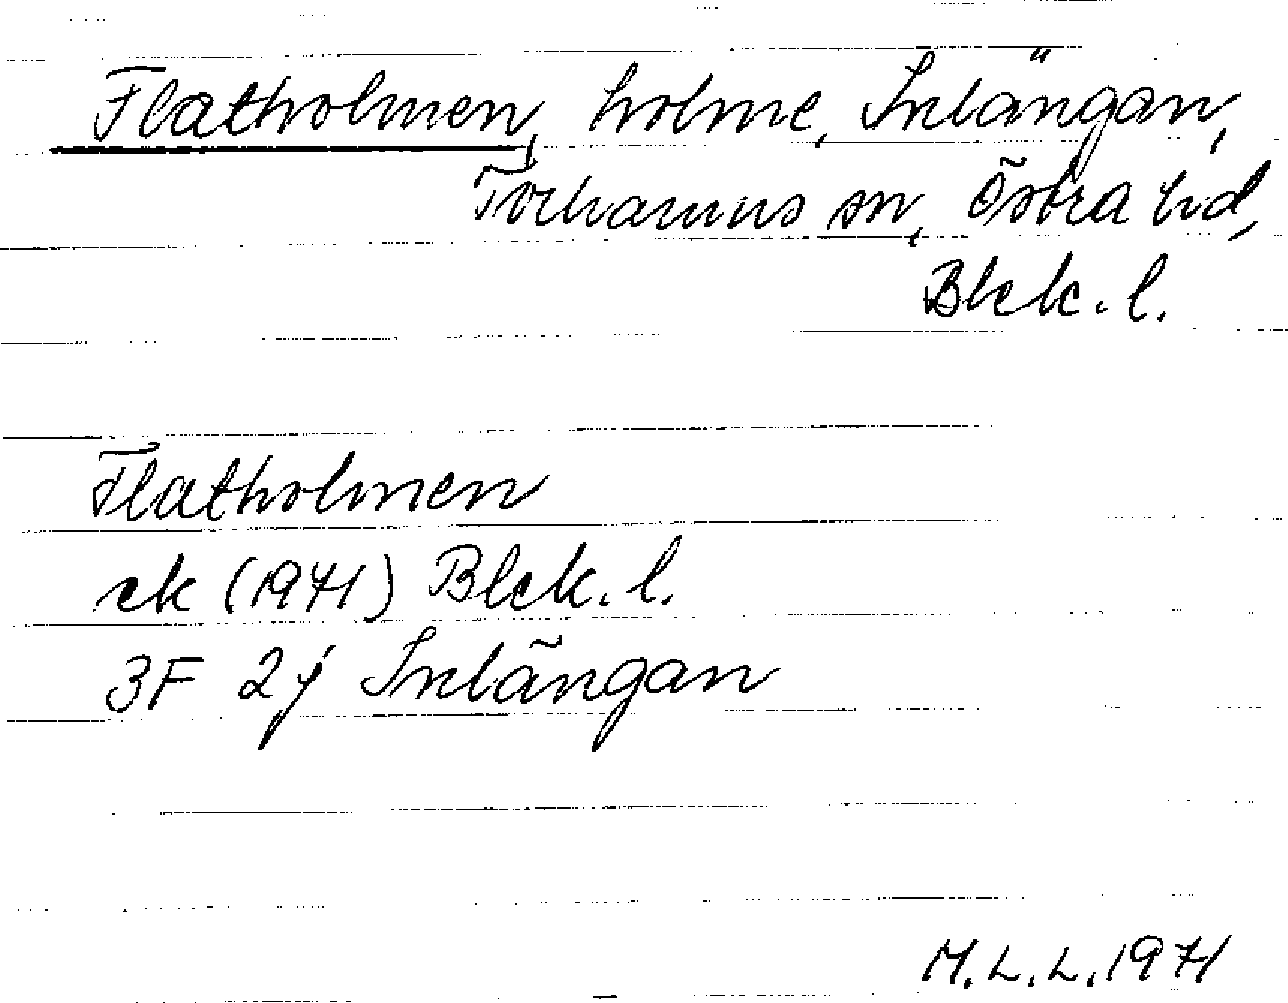 Flatholmen, holme, Inlängan,
Torhamns sn, Östra hd,
Blek. l.
Flatholmen
ek (1971) Blek. l.
3F 2j Inlängan
M.L.L. 1971